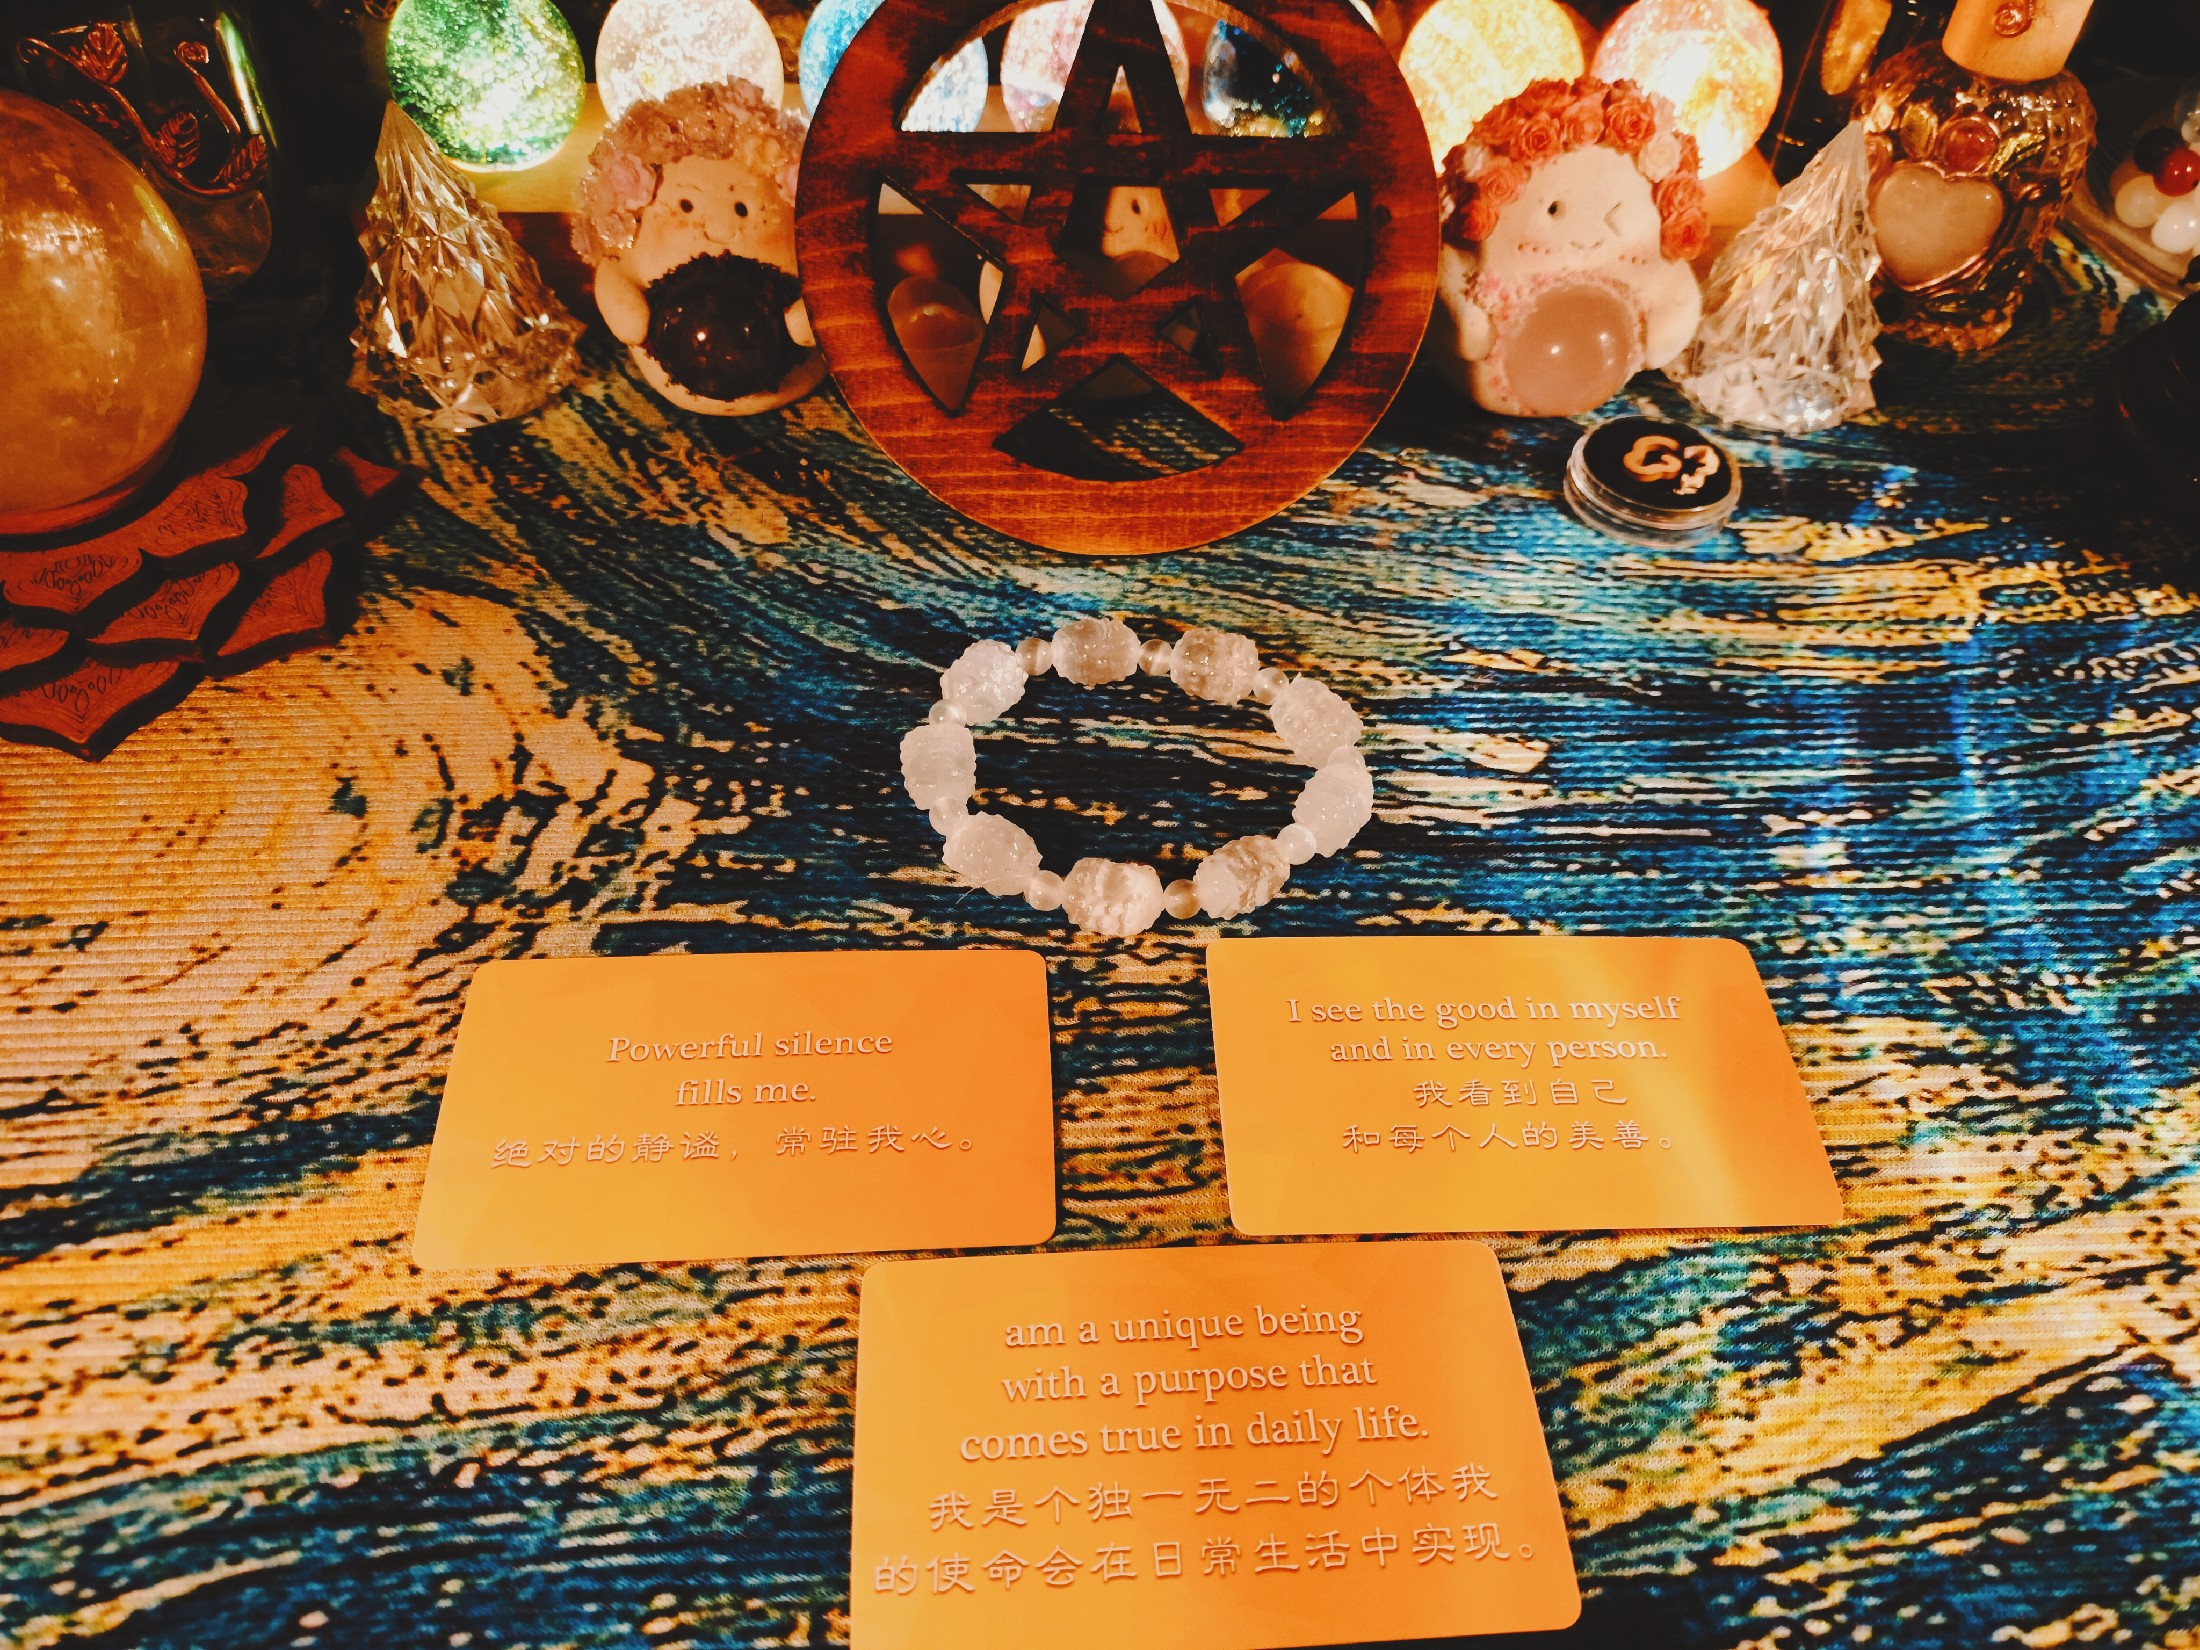 Powerful silence
fills me.
绝对的静谧，常驻我心。
I see the good in myself
and in every person.
我看到自己
和每个人的美善。
am a unique being
with a purpose that
comes true in daily life.
我是个独一无二的个体我
的使命会在日常生活中实现。